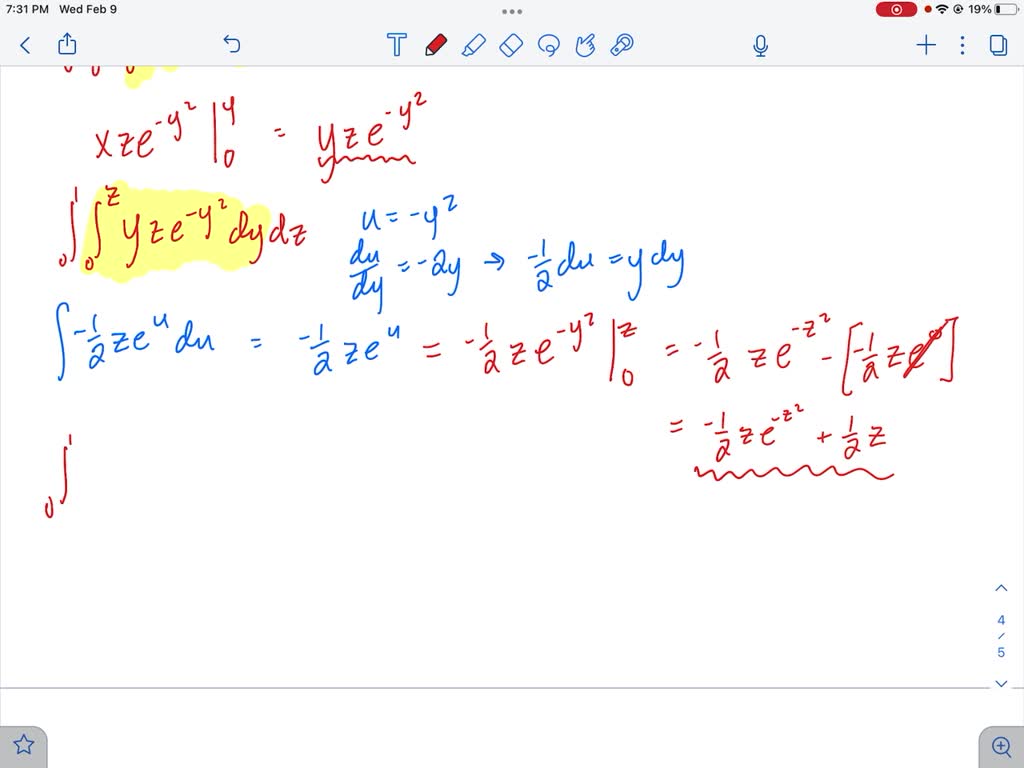 7:31 PM Wed Feb 9 19%
T
xze^{-y^2} |_0^y = yze^{-y^2}
∫_0^1 ∫_0^z yze^{-y^2} dy dz
u = -y^2
du/dy = -2y → -1/2 du = y dy
∫ -1/2 ze^u du = -1/2 ze^u = -1/2 ze^{-y^2} |_0^z = -1/2 ze^{-z^2} - [-1/2 ze^0]
= -1/2 ze^{-z^2} + 1/2 z
∫_0^1
4
/
5